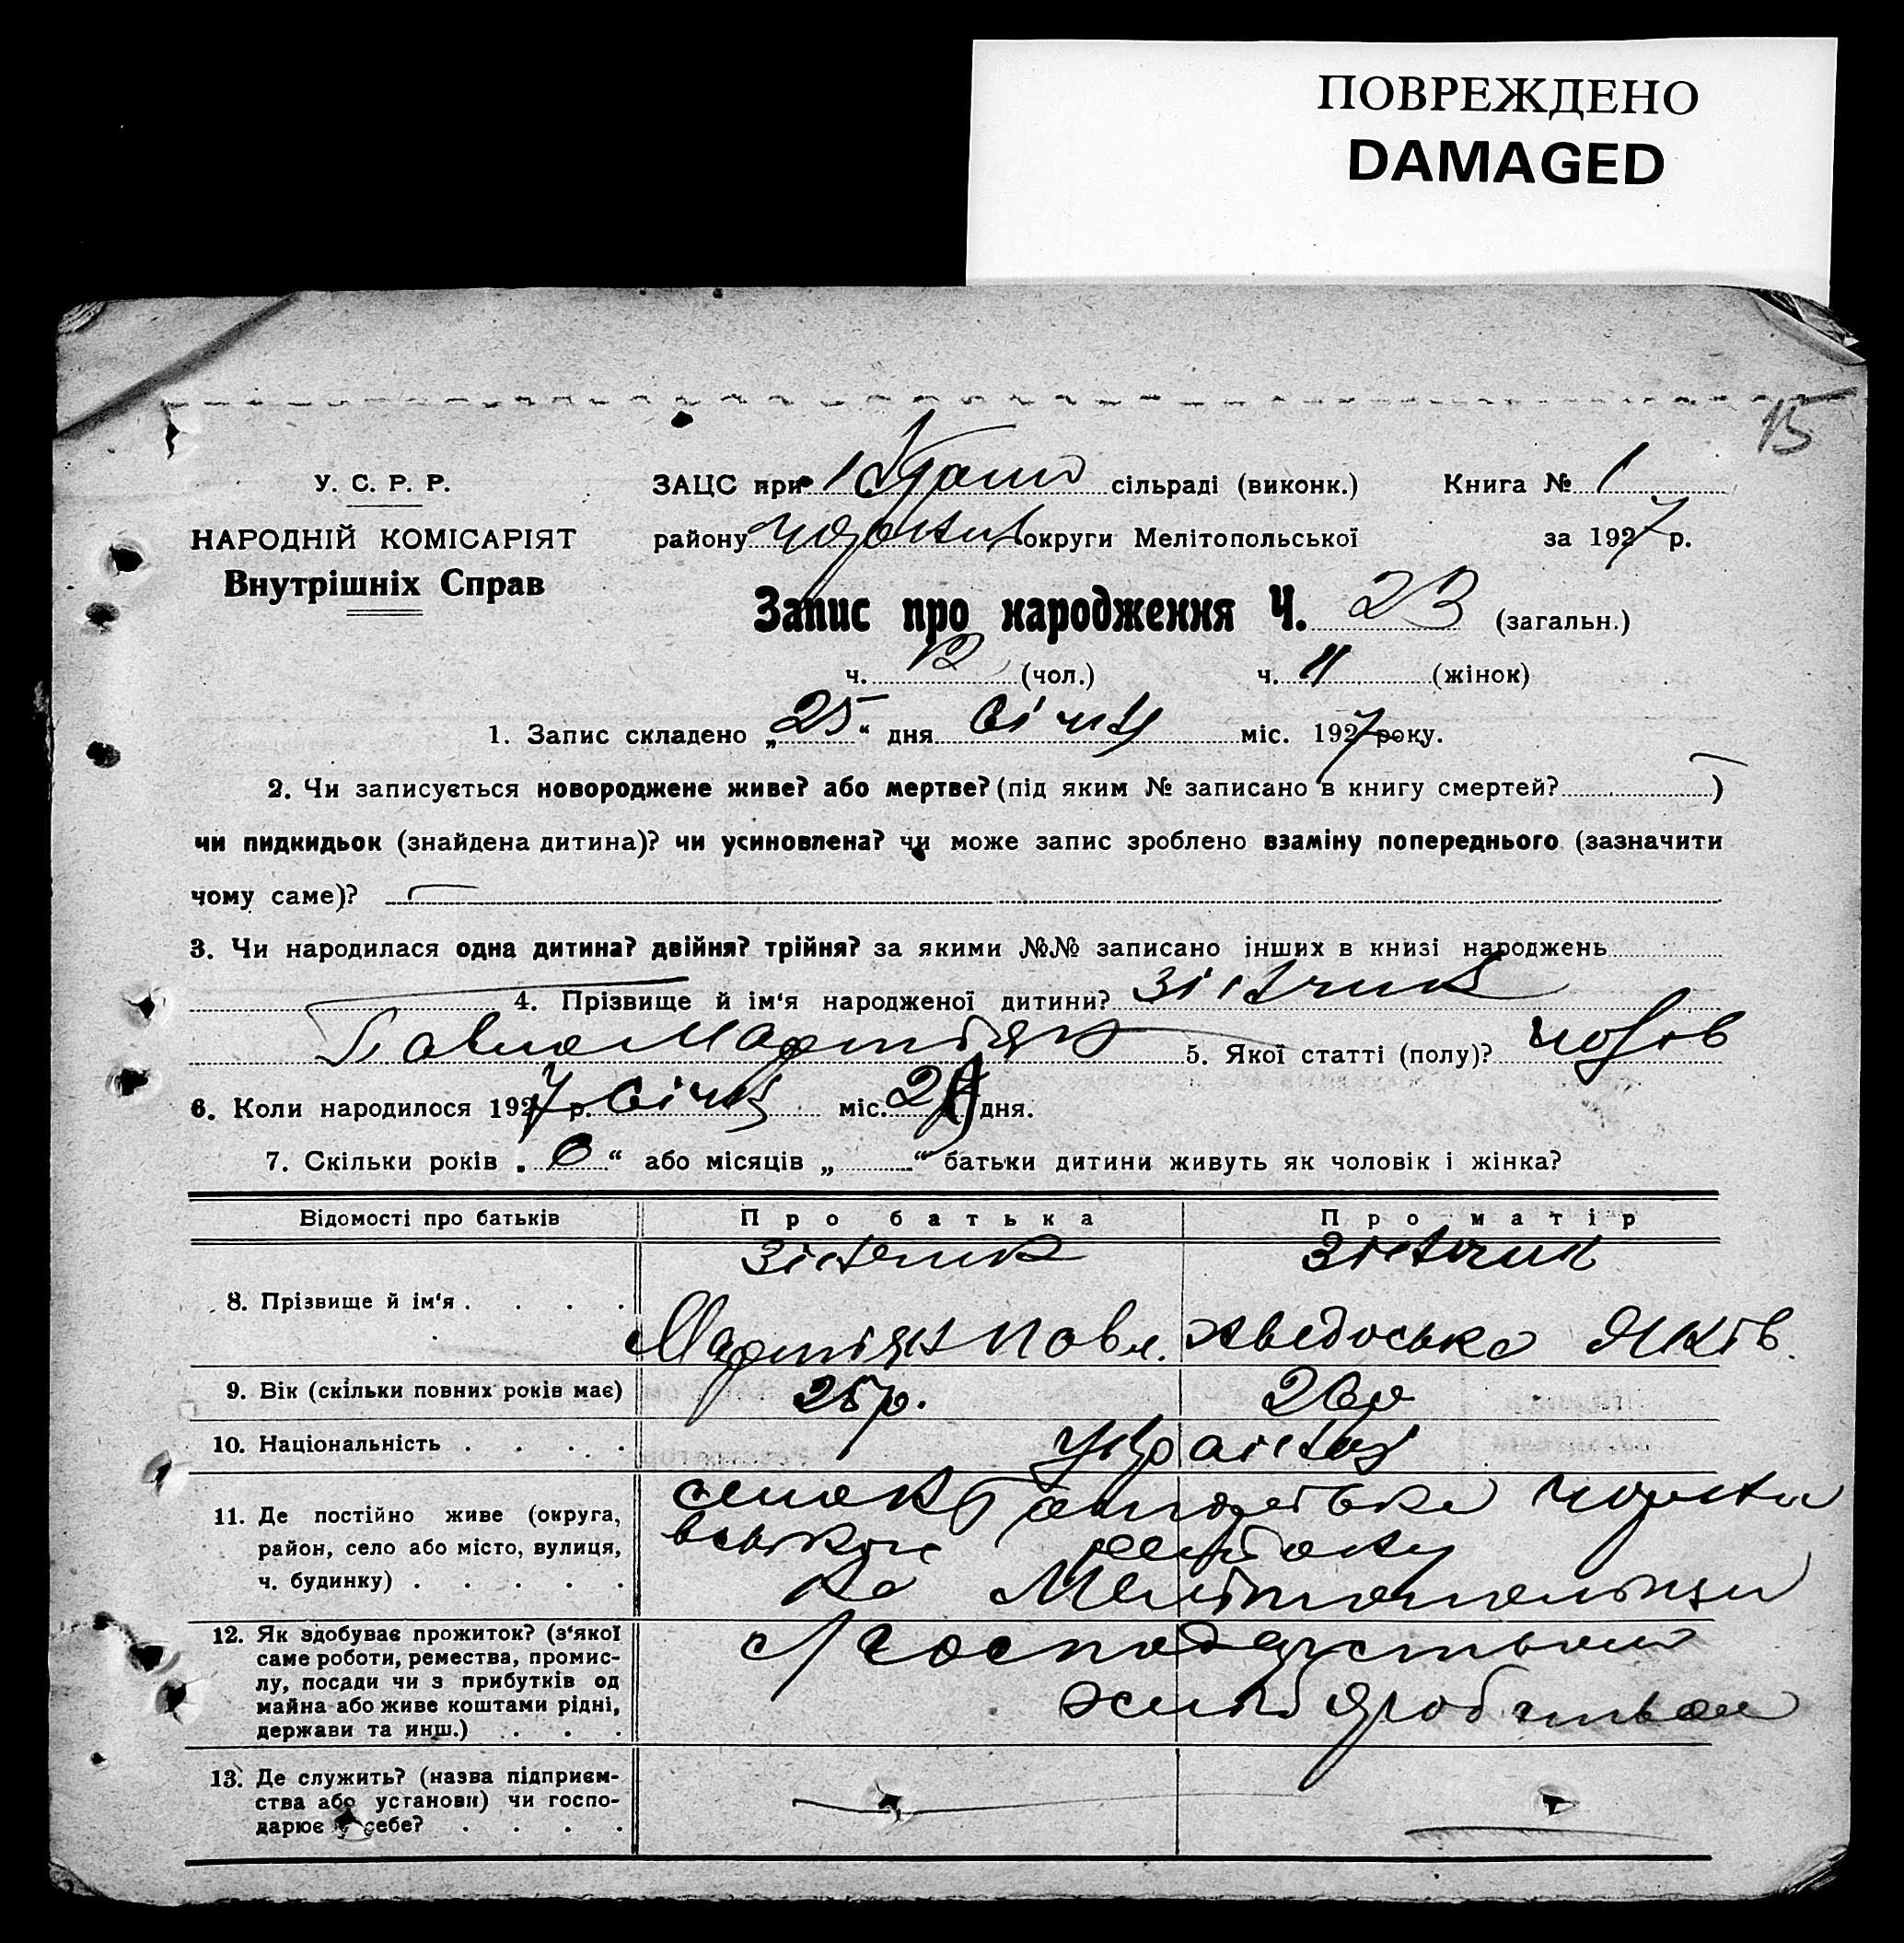 ПОВРЕЖДЕНО
DAMAGED
15
У. С. Р. Р.
НАРОДНІЙ КОМІСАРІЯТ
Внутрішніх Справ
ЗАЦС при сільраді (виконк.) Книга № 1
району округи Мелітопольської за 1927 р.
Запис про народження Ч. 23 (загальн.)
ч. 12 (чол.) ч. 11 (жінок)
1. Запис складено „25“ дня січня міс. 1927 року.
2. Чи записується новороджене живе? або мертве? (під яким № записано в книгу смертей? )
чи пидкидьок (знайдена дитина)? чи усиновлена? чи може запис зроблено взаміну попереднього (зазначити
чому саме)?
3. Чи народилася одна дитина? двійня? трійня? за якими №№ записано інших в книзі народжень
4. Прізвище й ім‘я народженої дитини? Зінчик
Павло Мартіян 5. Якої статті (полу)? чолов
6. Коли народилося 1927 р. січня міс. дня.
7. Скільки років „6“ або місяців „ “ батьки дитини живуть як чоловік і жінка?
Відомості про батьків Про батька Про матір
8. Прізвище й ім‘я . . . . Зінчик Зінчик
Мартіян Павл. Хведоська Яків.
9. Вік (скільки повних років має) 25 р. 26 р
10. Національність . . . . українці
11. Де постійно живе (округа,
район, село або місто, вулиця,
ч. будинку) . . . . . на Мелітопольщи
12. Як здобуває прожиток? (з‘якої
саме роботи, ремества, промис-
лу, посади чи з прибутків од
майна або живе коштами рідні,
держави та инш.) . . . с/господарством
хліборобством
13. Де служить? (назва підприєм-
ства або установи) чи госпо-
дарює у себе? . . . .